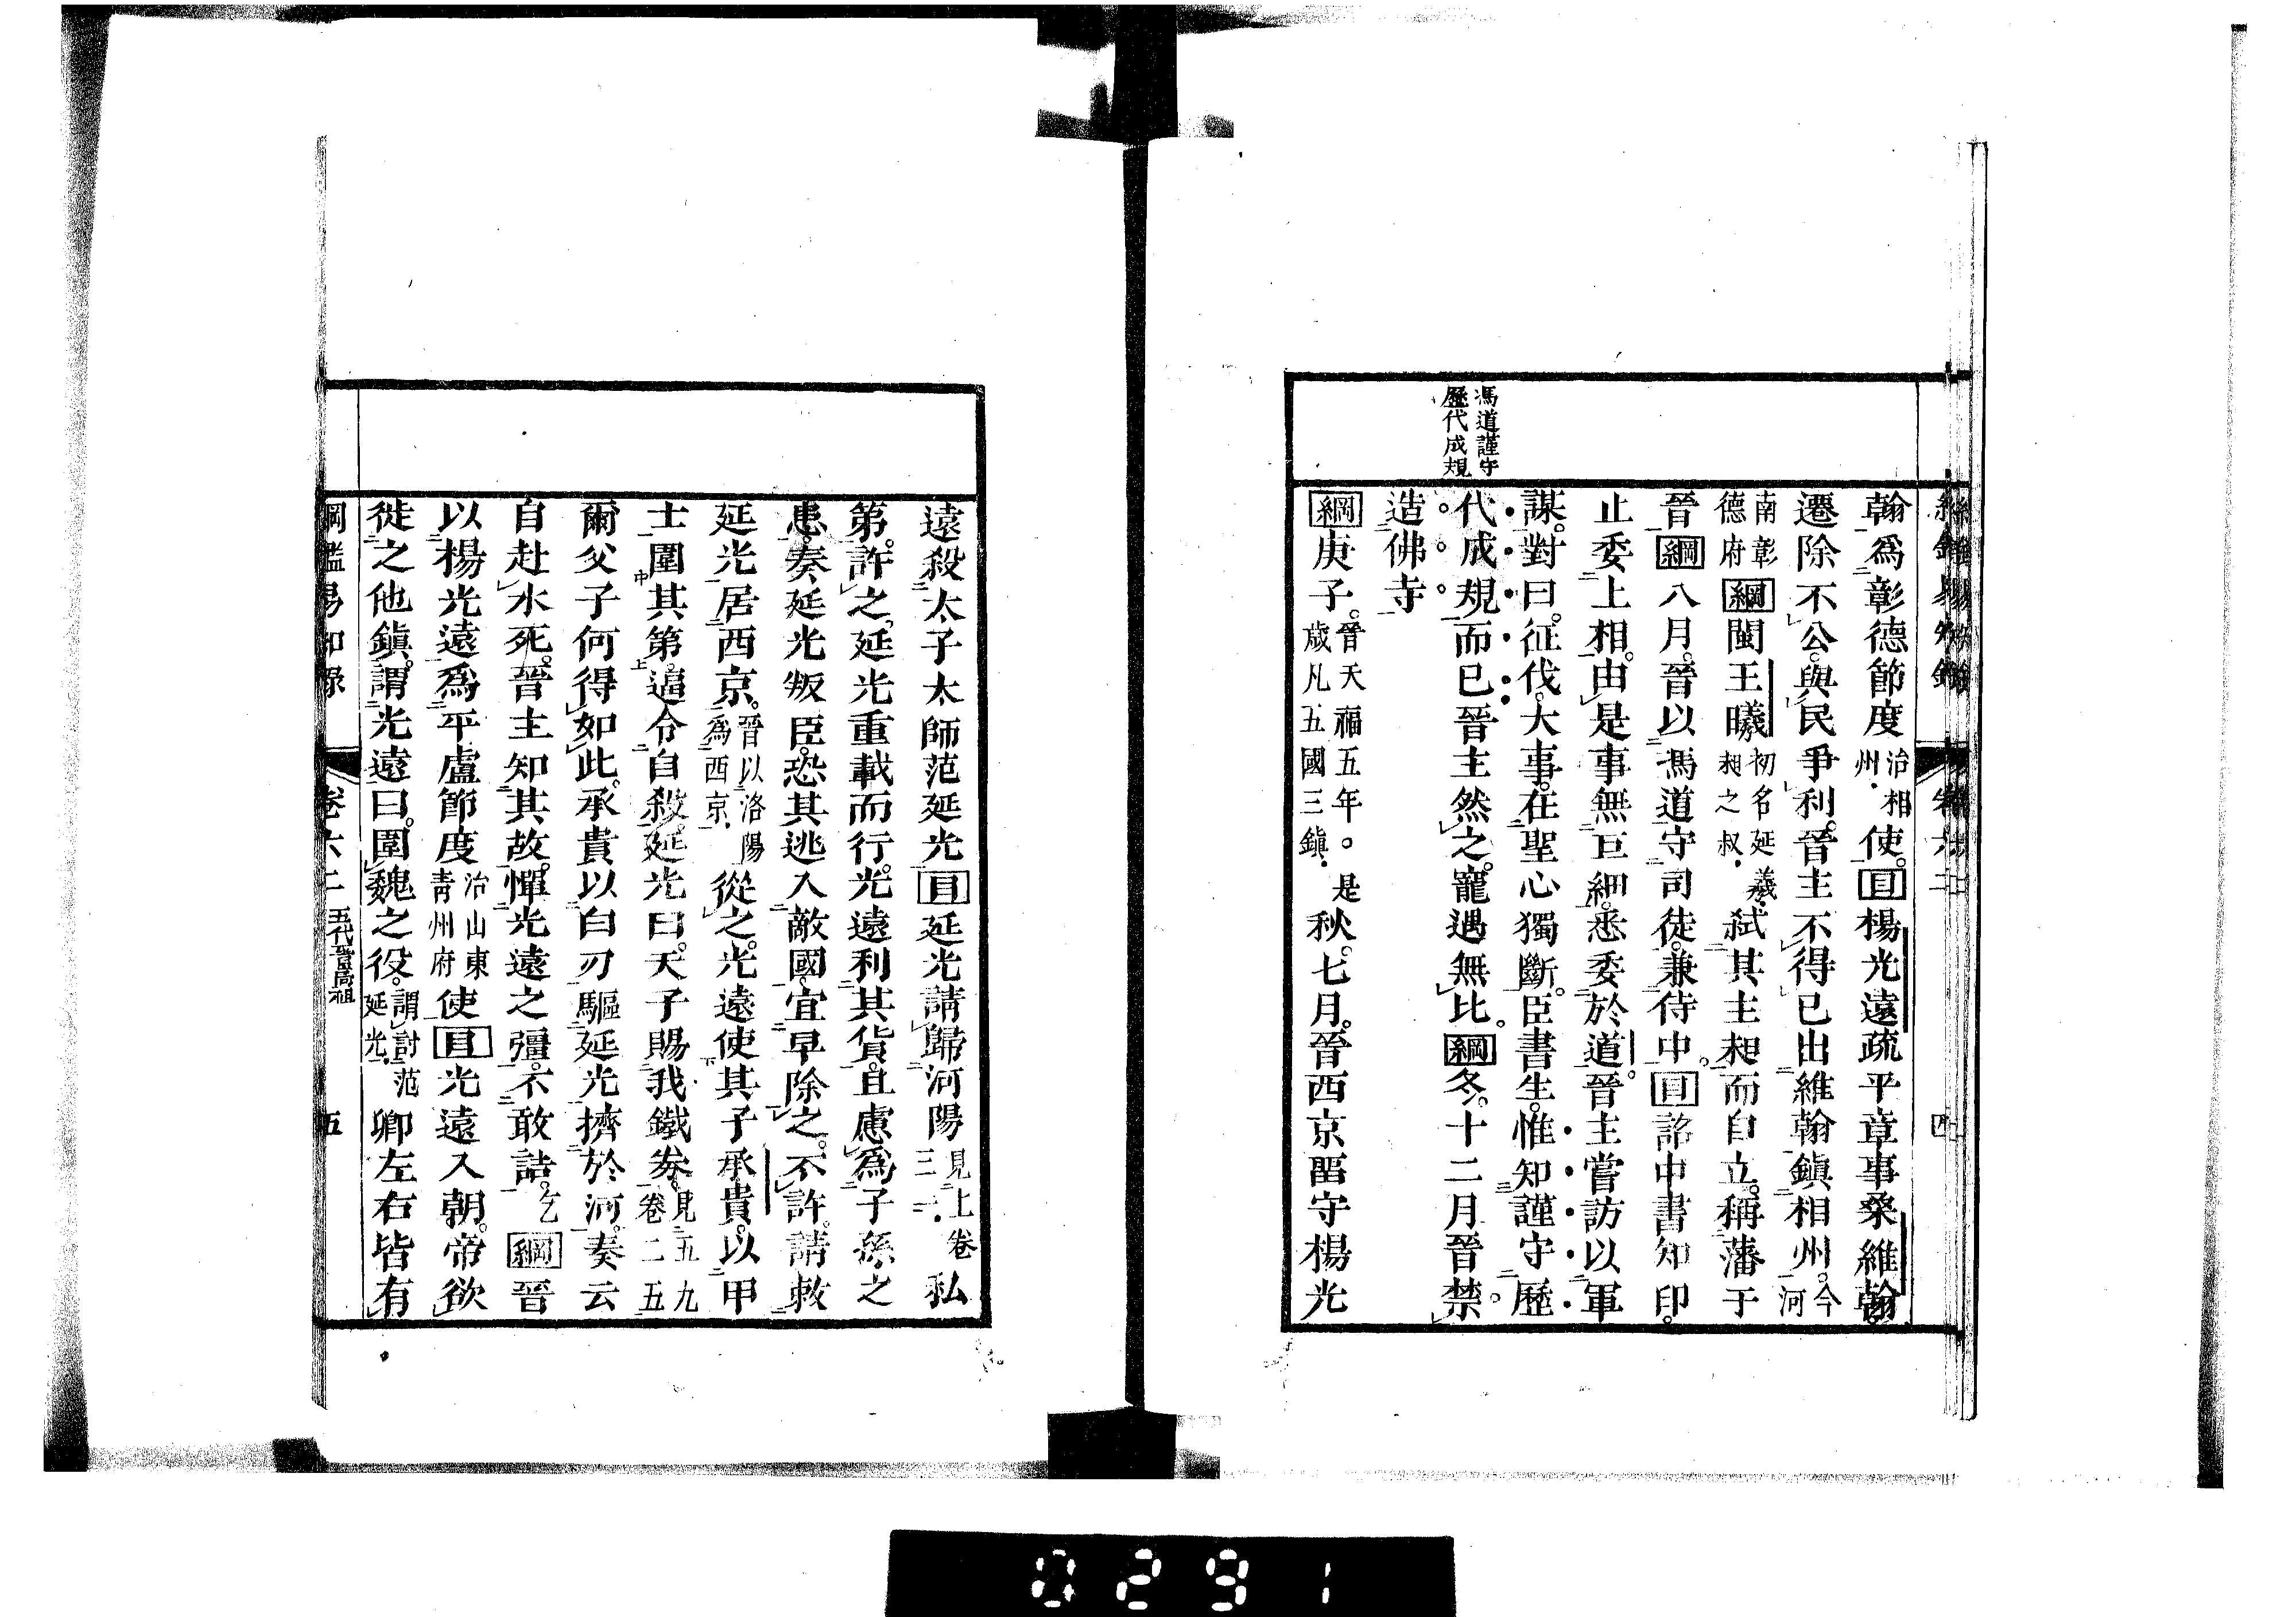 馮道謹守
歷代成規
翰爲彰德節度治相州使。目楊光遠疏平章事桑維翰。
遷除不公。與民爭利。晉主不得已出維翰鎮相州。今河
南彰德府綱閩王曦初名延羲。昶之叔弑其主昶而自立。稱藩于
晉綱八月。晉以馮道守司徒。兼侍中。目詔中書知印。
止委上相。由是事無巨細。悉委於道。晉主嘗訪以軍
謀。對曰。征伐大事。在聖心獨斷。臣書生。惟知謹守歷
代成規而已晉主然之。寵遇無比。綱冬。十二月晉禁
造佛寺
綱庚子。晉天福五年。是歲凡五國三鎮。秋。七月。晉西京畱守楊光
遠殺太子太師范延光目延光請歸河陽見上卷三一私
第。許之。延光重載而行。光遠利其貨。且慮爲子孫之
患。奏延光叛臣。恐其逃入敵國。宜早除之。不許。請敕
延光居西京。晉以洛陽爲西京從之。光遠使其子承貴。以甲
士圍其第。逼令自殺。延光曰。天子賜我鐵券。見五九卷二五
爾父子何得如此。承貴以白刃驅延光擠於河。奏云
自赴水死。晉主知其故。憚光遠之彊。不敢詰。乞綱晉
以楊光遠爲平盧節度治山東青州府使目光遠入朝。帝欲
徙之他鎮。謂光遠曰。圍魏之役。謂討范延光卿左右皆有
綱鑑易知錄 卷六二 五代晉高祖 五
0291